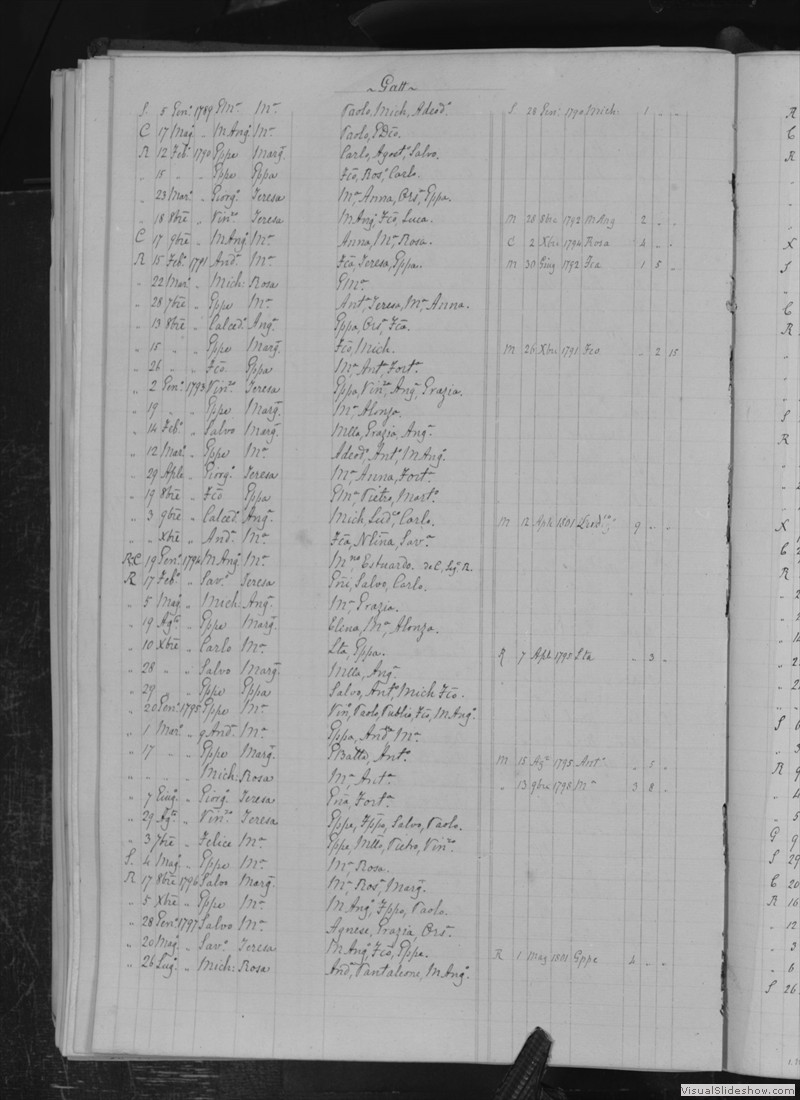 ~ Gatt ~
S. 5 Gen.º 1789 GMª Mª Paolo, Mich, Adeod.º S. 28 Gen: 1790 Mich: 1 " "
C 17 Mag " MAng. Mª Paolo, GDco.
R 12 Feb.º 1790 Gppe Marg. Carlo, Agost.º, Salvo.
" 15 " " Gppe Gppa Fco, Ros.ª, Carlo.
" 23 Mar.º " Giorg.º Teresa Mª Anna, Ors.ª, Gppa.
" 18 8bre " Vin.zo Teresa MAng, Fco, Luca. M 28 8bre 1792 MAng 2 " "
C 17 9bre " MAng. Mª Anna, Mª, Rosa. C 2 Xbre 1794 Rosa 4 " "
R 15 Feb.º 1791 And.ª Mª Fca, Teresa, Gppa. M 30 Giug 1792 Fca 1 5 "
" 22 Mar.º " Mich: Rosa GMª
" 28 7bre " Gppe Mª Ant.ª, Teresa, Mª, Anna.
" 13 8bre " Calced.º Ang.ª Gppa, Ors.ª, Fca.
" 15 " " Gppe Marg. Fco, Mich. M 26 Xbre 1791 Fco " 2 15
" 26 " " Fco Gppa Mª Ant.ª Fort.ª
" 2 Gen.º 1793 Vin.zo Teresa Gppa, Vin.za, Ang.ª, Grazia.
" 19 " " Gppe Marg. Mª, Alonza.
" 14 Feb.º " Salvo Marg. Mlla, Grazia, Ang.ª
" 12 Mar.º " Gppe Mª Adeod.ª Ant.ª MAng.
" 29 Aple " Giorg.º Teresa Mª Anna, Fort.ª
" 19 8bre " Fco Gppa GMª Pietro, Mart.º
" 3 9bre " Calced.º Ang.ª Mich, Lud.co, Carlo. M 12 Aple 1801 9 " "
" " Xbre " And.ª Mª Fca, Nlina, Sav.ª
R.C 19 Gen.º 1794 MAng. Mª Mno Estuardo. de C. Sig. R.
R 17 Feb.º " Sav.º Teresa Gni, Salvo, Carlo.
" 5 Mag " Mich: Ang.ª Mª, Grazia.
" 19 Ag.to " Gppe Marg. Clena, Mª, Alonza.
" 10 Xbre " Carlo Mª Lta, Gppa. R 7 Aple 1790 Lta " 3 "
" 28 " " Salvo Marg. Mlla, Ang.ª
" 29 " " Gppe Gppa Salvo, Ant.º, Mich Fco.
" 20 Gen.º 1795 Gppe Mª Vin.º, Paolo, Publio, Fco, MAng.
" 1 Mar.º " q. And.ª Mª Gppa, And.ª Mª
" 17 " " Gppe Marg. GBatta, Ant.º M 15 Ag.º 1795 Ant.º " 5 "
" " " " Mich: Rosa Mª, Ant.ª " 13 9bre 1798 Mª 3 8 "
" 7 Giug. " Giorg.º Teresa Gna, Fort.ª
" 29 Ag.º " Vin.zo Teresa Gppe, Fppo, Salvo, Paolo.
" 3 7bre " Felice Mª Gppa, Mlla, Pietro, Vin.zo
S. 4 Mag " Gppe Mª Mª, Rosa.
R 17 8bre 1796 Salvo Marg. Mª, Ros.ª, Marg.
" 5 Xbre " Gppe Mª MAng, Fppo, Paolo.
" 28 Gen.º 1797 Salvo Mª Agnese, Grazia, Ors.ª
" 20 Mag. " Sav.º Teresa MAng, Fco, Gppe. R 1 Mag 1801 Gppe 4 " "
" 26 Lug. " Mich: Rosa And.ª, Pantaleone, MAng.
VisualSlideshow.com